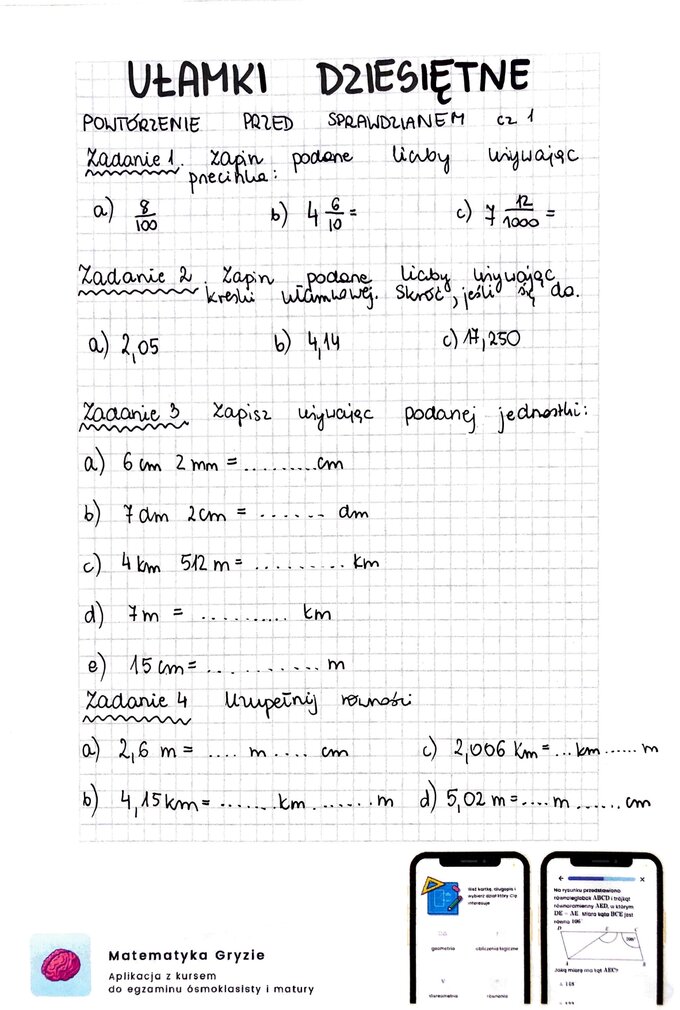 UŁAMKI DZIESIĘTNE
POWTÓRZENIE PRZED SPRAWDZIANEM cz 1
Zadanie 1. Zapisz podane liczby używając
przecinka:
a) 8/100 b) 4 6/10 = c) 7 12/1000 =
Zadanie 2. Zapisz podane liczby używając
kreski ułamkowej. Skróć, jeśli się da.
a) 2,05 b) 4,14 c) 17,250
Zadanie 3. Zapisz używając podanej jednostki:
a) 6 cm 2 mm = ......... cm
b) 7 dm 2 cm = ...... dm
c) 4 km 512 m = ......... km
d) 7 m = .......... km
e) 15 cm = ........... m
Zadanie 4 Uzupełnij równości
a) 2,6 m = .... m .... cm c) 2,006 km = ... km ...... m
b) 4,15 km = ....... km ....... m d) 5,02 m = .... m ...... cm
Weź kartkę, długopis i
wybierz dział który Cię
interesuje
geometria obliczenia logiczne
równania
Na rysunku przedstawiono
równoległobok ABCD i trójkąt
równoramienny AED, w którym
DE = AE. Miara kąta BCE jest
równa 108°
D E C
108°
A B
Jaką miarę ma kąt AEC?
Matematyka Gryzie
Aplikacja z kursem
do egzaminu ósmoklasisty i matury